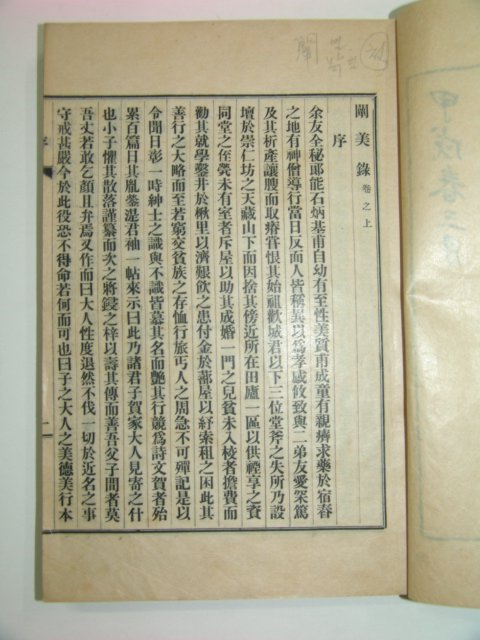 闡美錄 卷之上
序
余友全秘郞能石炳基甫自幼有至性美質甫成童有親癠求藥於宿春
之地有神僧導行當日反面人皆稱異以爲孝感攸致與二弟友愛冞篤
及其析產讓腴而取瘠嘗恨其始祖歡城君以下三位堂斧之失所乃設
壇於崇仁坊之天藏山下而因捨其傍近所在田廬一區以供禋享之資
同堂之侄煢未有室者斥屋以助其成婚一門之兒貧未入校者擔費而
勸其就學鑿井於楸里以濟艱飮之患付金於蔀屋以紓索租之困此其
善行之大略而至若窮交貧族之存恤行旅丐人之周急不可殫記是以
令聞日彰一時紳士之識與不識皆慕其名而艶其行競爲詩文賀者殆
累百篇日其胤湜君袖一帖來示曰此乃諸君子賀家大人見寄之什
也小子懼其散落謹纂而次之將鋟之梓以壽其傳而善吾父子間者莫
吾丈若敢乞顏且弁焉又作而曰大人性度退然不伐一切於近名之事
守戒甚嚴今於此役恐不得命若何而可也曰子之大人之美德美行本
序
一
甲戌春